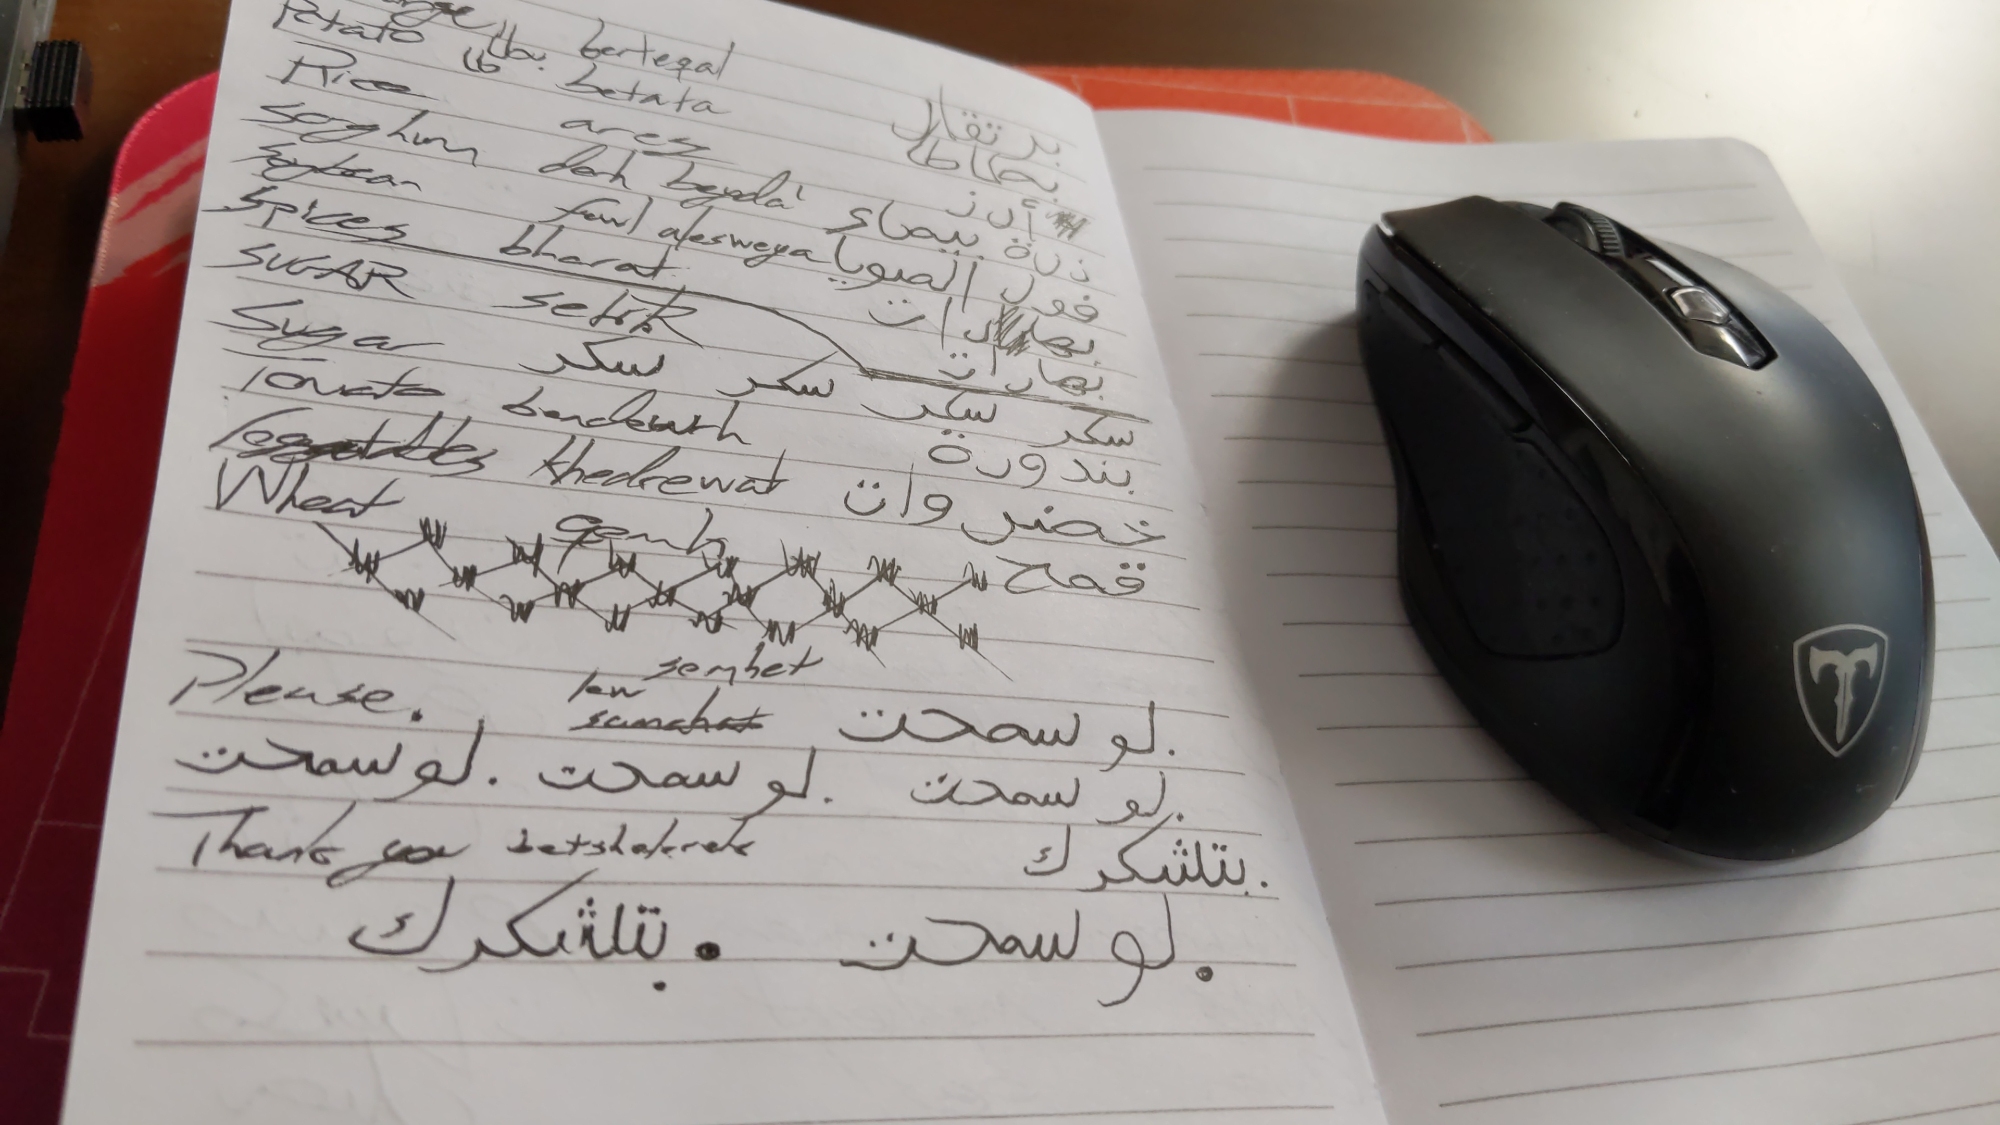 bertegal برتقال
Potato بطاطا betata بطاطا
Rice ares أرز
Sorghum derh beyda' ذرة بيضاء
Soybean fowl alesweya فول الصويا
Spices bharat بهارات
بهارات
SUGAR
Sugar سكر سكر سكر سكر
Tomato بندورة
Vegetables khedrewat خضروات
Wheat qemh قمح
semhet
Please. law samahat لو سمحت.
لو سمحت. لو سمحت. لو سمحت.
Thank you betshekrek بتلشكرك.
لو سمحت. بتلشكرك.